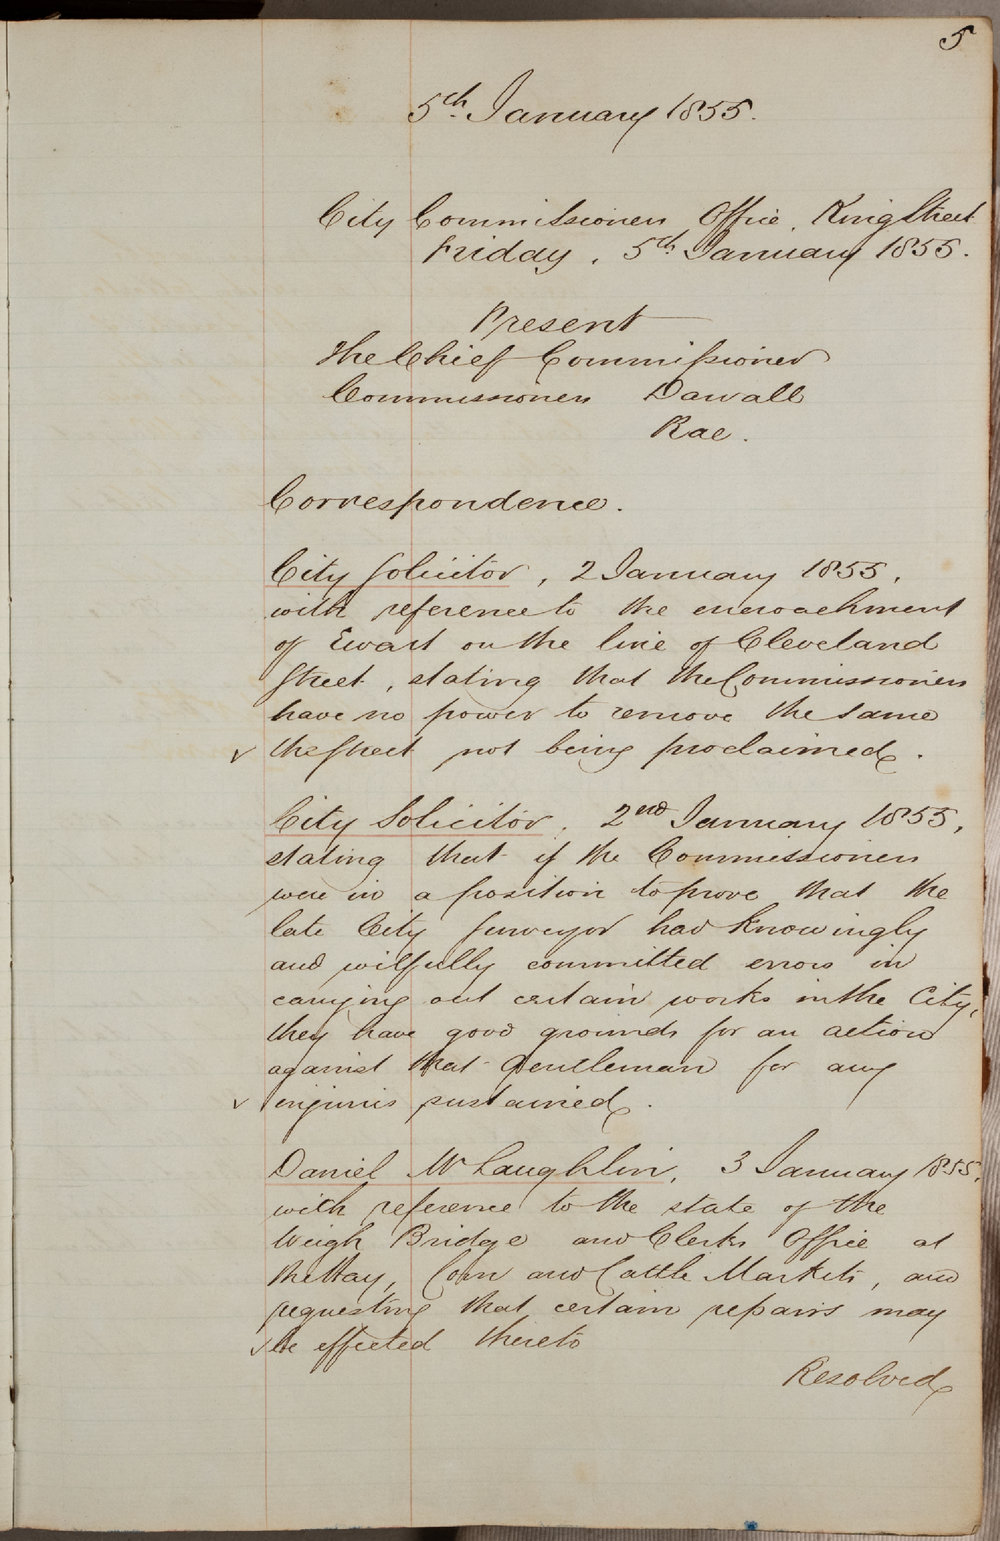 5
5th January 1855.
City Commissioners Office, King Street
Friday, 5th January 1855.
Present
The Chief Commissioner
Commissioners Darvall
Rae.
Correspondence.
City Solicitor, 2 January 1855,
with reference to the encroachment
of Ewart on the line of Cleveland
Street, stating that the Commissioners
have no power to remove the same
✓ the Street not being proclaimed.
City Solicitor, 2nd January 1855,
stating that if the Commissioners
were in a position to prove that the
late City Surveyor had knowingly
and wilfully committed errors in
carrying out certain works in the City,
they have good grounds for an action
against that Gentleman for any
✓ injuries sustained.
Daniel McLaughlin, 3 January 1855,
with reference to the state of the
Weigh Bridge and Clerks Office at
the Hay, Corn and Cattle Markets, and
requesting that certain repairs may
✓ be effected thereto
Resolved